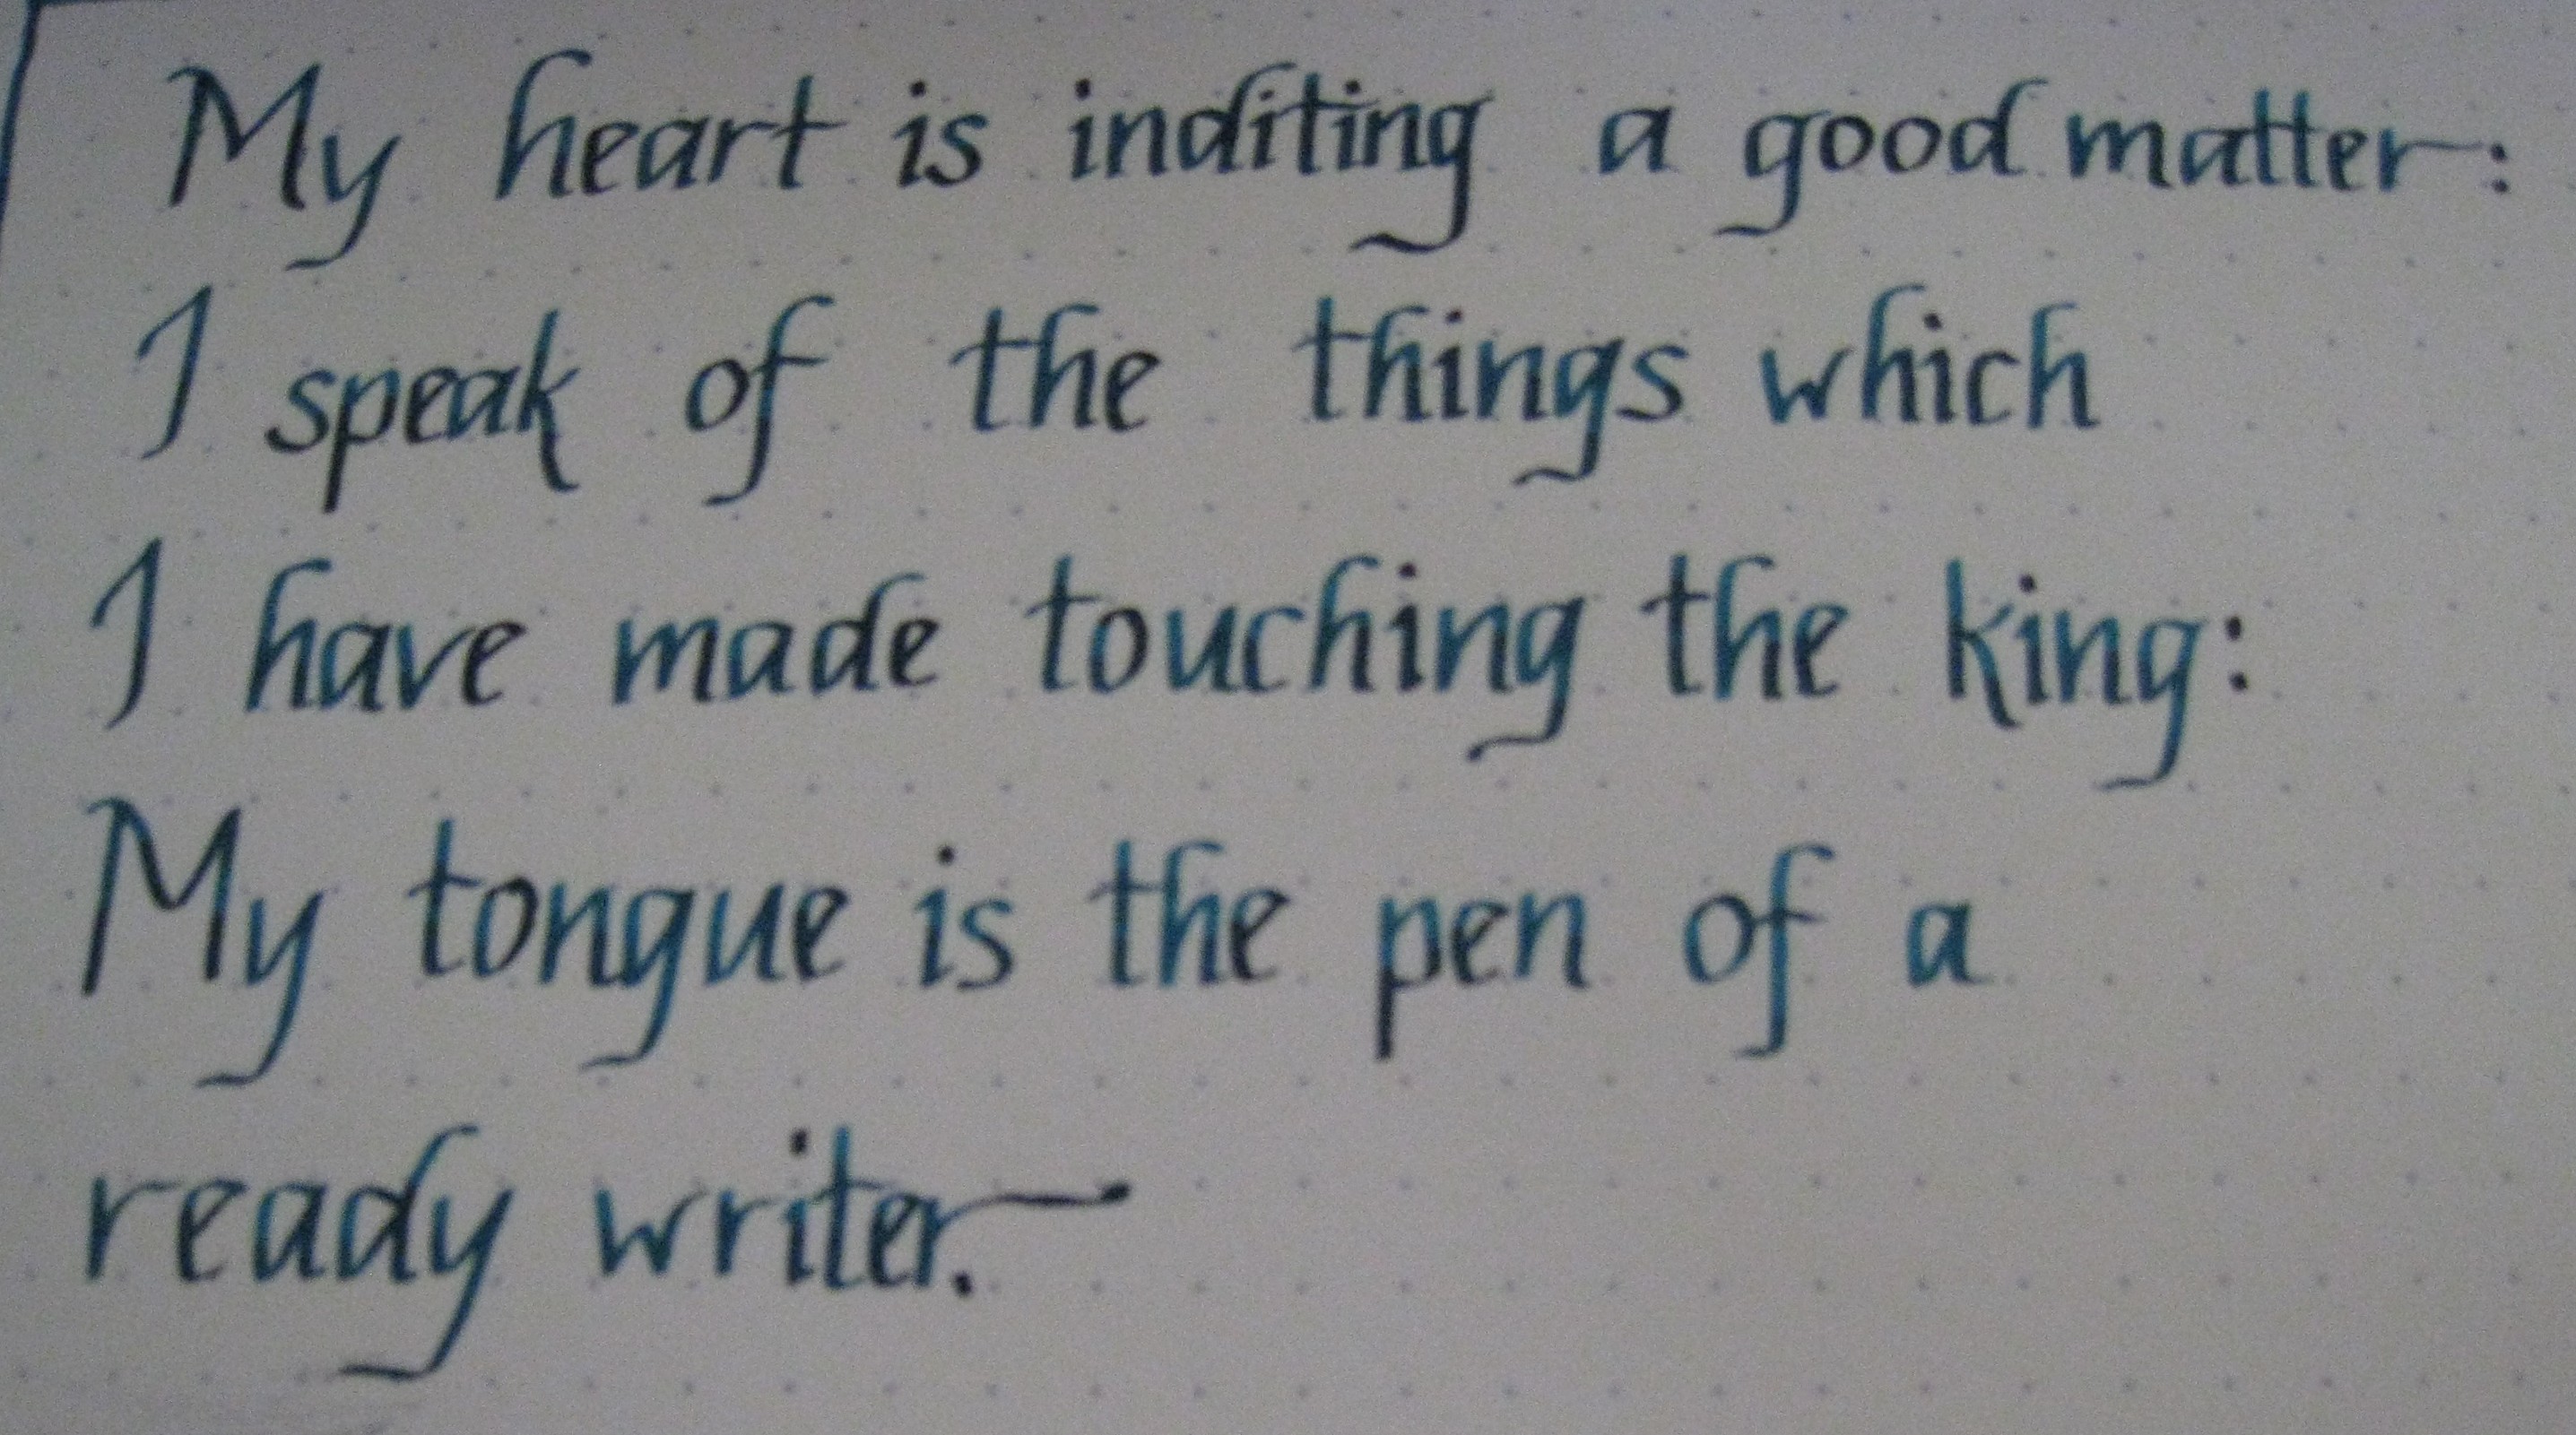 My heart is inditing a good matter:
I speak of the things which
I have made touching the king:
My tongue is the pen of a
ready writer.